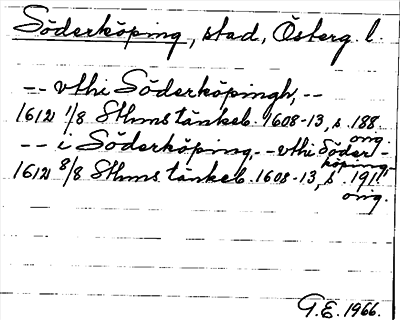 Söderköping, stad, Österg. l.
-- vthi Söderköpingh, --
1612 1/8 Sthms tänkeb. 1608-13, s. 188.
orig.
-- i Söderköping, -- vthi Söder-
köping
1612 8/8 Sthms tänkeb. 1608-13, s. 191
orig.
G.E. 1966.